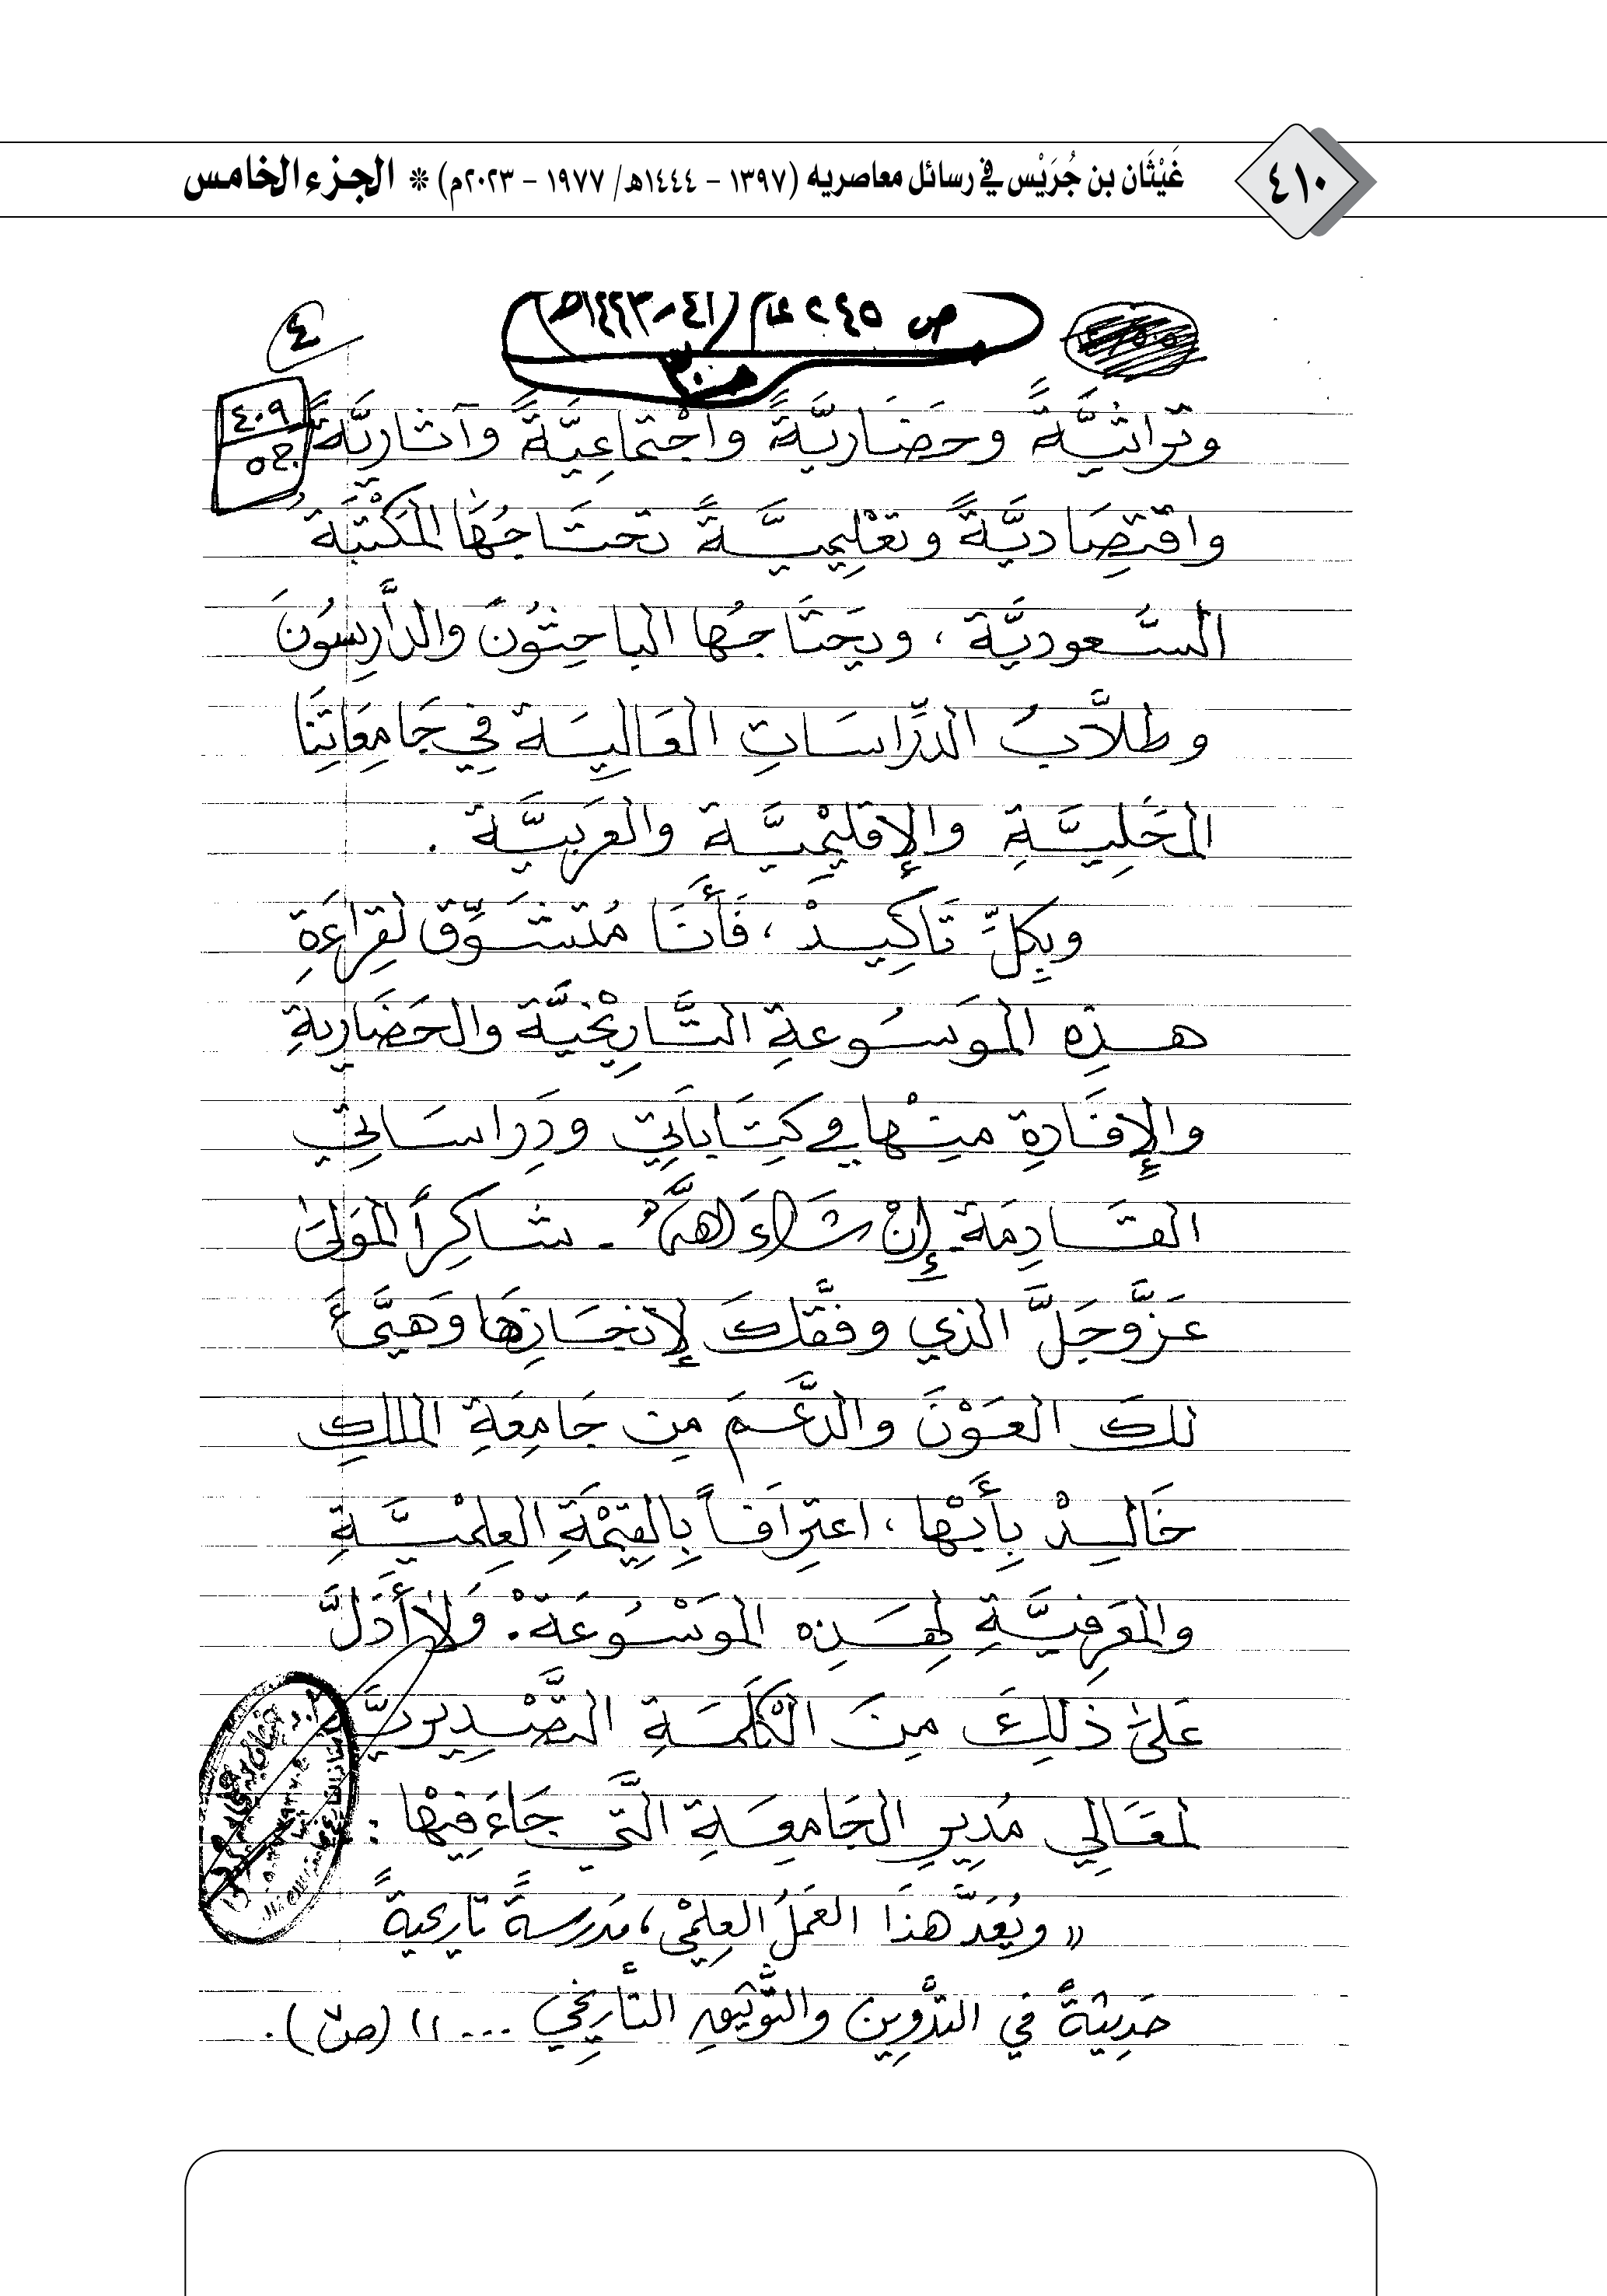 ٤١٠
غَيْثَان بن جُرَيْس في رسائل معاصريه (١٣٩٧ - ١٤٤٤هـ/ ١٩٧٧ - ٢٠٢٣م) * الجزء الخامس
ص ٢٤٥ عام (١٤٤١-١٤٤٣هـ
٤
٤٠٩
ج٥
وتراثيَّةً وحَضَاريَّةً واجْتماعِيَّةً وآثاريَّةً
واقتصَاديَّةً وتعْلِيميَّةً تحتَاجُهَا المكْتبَة
السَّعوديَّة ، ويَحتَاجُها الباحِثُونَ والدَّارِسُونَ
وطلاَّبُ الدِّرَاسَاتِ العَاليَة في جَامِعَاتِنَا
المحَلِيَّةِ والإقليْميَّة والعَربيَّة .
وبِكلِّ تَاكِيدْ ، فَأَنَا مُتشَوِّق لقِراءَةِ
هذِه الموَسُوعةِ التَّاريْخيَّة والحَضَاريةِ
والإفَادِة مِنْها في كِتَاباَتي ودِراسَاتي
القَادِمَة- إنْ شَاءَ اللهُ - شاكِراً الموَلىَ
عَزَّوجَلَّ الذي وفَّقكَ لإنجَازِهَا وَهيَّئَ
لكَ العَوْنَ والدَّعْمَ مِن جَامِعَةِ الملكِ
خَالِدْ بِأَبْها ، اعتِرَافاً بِالقِيْمَةِ العِلْميَّةِ
والمعَرِفيَّةِ لهَذِه الموَسْوُعَةْ. وَلاَ أَدَلَّ
عَلىَ ذلِكَ مِنَ الْكَلِمَةِ التصْديريَّة
لمعَالِي مُدِيرِ الجَامعَةِ التَّي جَاءَ فِيهْا :
« ويُعَدَّ هذَا العَمَلُ العِلمْي ، مَدرسةً تاريخيةً
حَدِيثةً في التدْوِين والتَّوْثيقِ التَّارِيخي ... » (ص٧) .